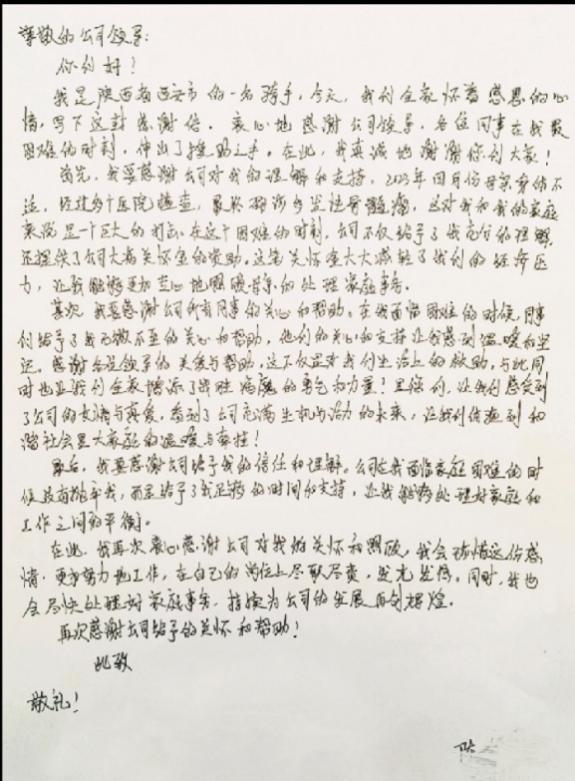 尊敬的公司领导:
你们好!
我是陕西省西安市的一名骑手,今天,我们全家怀着感恩的心
情,写下这封感谢信。衷心地感谢公司领导,各位同事在我最
困难的时刻,伸出了援助之手。在此,我真诚地谢谢你们大家!
首先,我要感谢公司对我的理解和支持,2023年四月份母亲身体不
适,经过多个医院检查,最终确诊多发性骨髓瘤,这对我和我的家庭
来说是一个巨大的打击。在这个困难的时刻,公司不仅给予了我充分的理解,
还提供了公司大病关怀金的资助。这笔关怀金大大减轻了我们的经济压
力,让我能够更加安心地照顾母亲的处理家庭事务。
其次,我要感谢公司所有同事的关心和帮助。在我面临困难的时候,同事
们给予了我无微不至的关心和帮助,他们的关心和支持让我感到温暖和坚
定。感谢各级领导的关爱与帮助,这不仅是对我们生活上的救助,与此同
时也让我们全家增添了战胜病魔的勇气和力量!里,让我们感受到
了公司的真情与真爱,看到了公司充满生机与活力的未来,让我们体验到和
谐社会是大家庭的温暖与幸福!
最后,我要感谢公司给予我的信任和理解。公司在我面临家庭困难的时
候没有抛弃我,而是给予了我足够的时间和支持,让我能够处理好家庭和
工作之间的平衡。
在此,我再次衷心感谢公司对我的关怀和照顾,我会珍惜这份感
情,更加努力地工作,在自己的岗位上尽职尽责,发光发热。同时,我也
会尽快处理好家庭事务,继续为公司的发展再创辉煌。
再次感谢公司给予的关怀和帮助!
此致
敬礼!